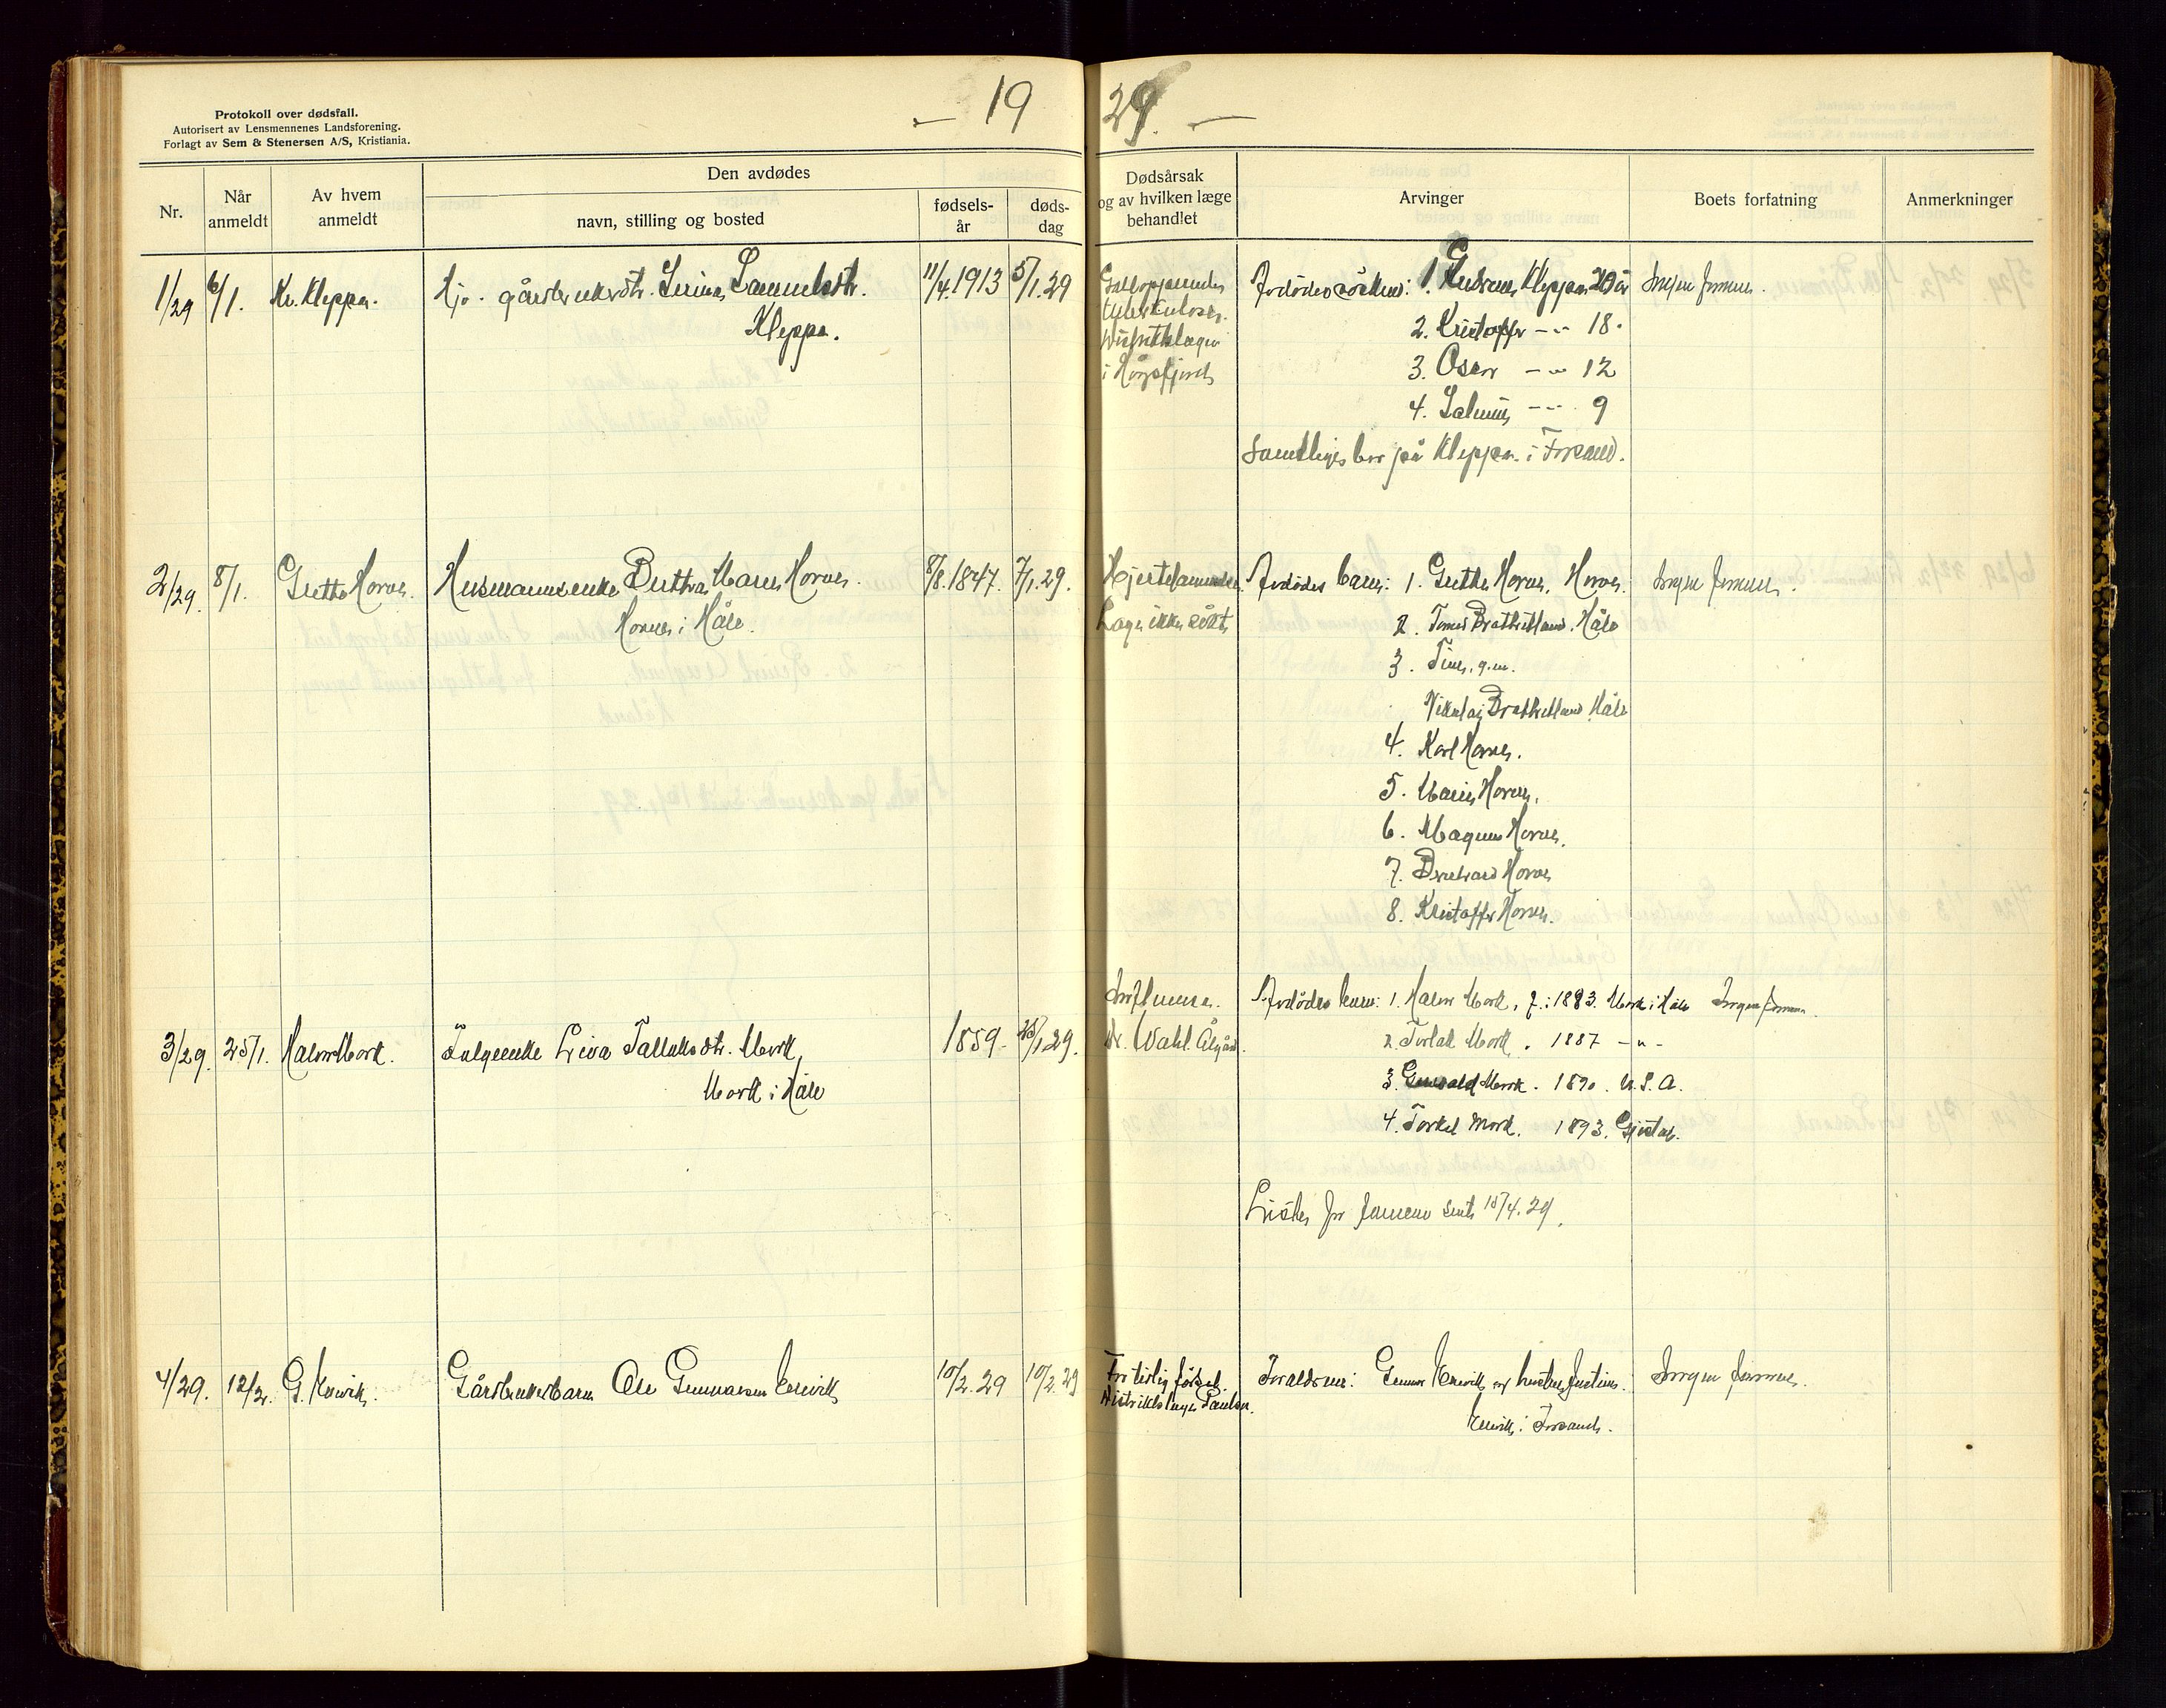 — 19 29. —
Protokoll over dødsfall.
Autorisert av Lensmennenes Landsforening.
Forlagt av Sem & Stenersen A/S, Kristiania.
Nr.
Når
anmeldt
Av hvem
anmeldt
Den avdødes
navn, stilling og bosted
fødsels-
år
døds-
dag
Dødsårsak
og av hvilken læge
behandlet
Arvinger
Boets forfatning
Anmerkninger
1/29 6/1. Kr. Kleppa.
gårdbrukerdtr.
Kleppa.
11/4.1913 5/1.29
tuberkulose.
Distriktslegen
i Høgsfjord
Avdødes søsken: 1. Kleppa 20 år
2. Kristoffer — 18.
3. — 12
4. — 9
Samtlige bor på Kleppa i Forsand.
Ingen formue.
2/29. 8/1. Grethe Horve.
Husmannsenke Berthe Marie Horve.
Horve i Håle.
8/8.1847. 7/1.29.
Læge ikke søkt
Avdødes barn: 1. Grethe Horve, Horve.
2. Bratthetland, Håle
3. Tine, g.m.
Nikolai Bratthetland Håle
4. Karl Horve.
5. Marie Horve.
6. Magnus Horve.
7. Horve
8. Kristoffer Horve.
Ingen formue.
3/29. 25/1. Halvor Mork.
Liva Tallaksdtr. Mork,
Mork i Håle
1859. 25/1.29.
Influensa.
Dr. Wahl. Ålgård.
Avdødes barn: 1. Halvor Mork, f. 1883. Mork i Håle
2. Torlak Mork. 1887 — " —
3. Mork. 1890. U.S.A.
4. Torkel Mork. 1893. Gjestal.
Ingen formue.
Liste for sendt 15/4.29.
4/29. 12/2. G.
Gårdbrukerbarn Ole Gunnarsen
10/2.29 10/2.29
For tidlig fødsel.
Distriktslæge Paulsen.
Foreldrene: Gunnar og hustru
i Forsand.
Ingen formue.